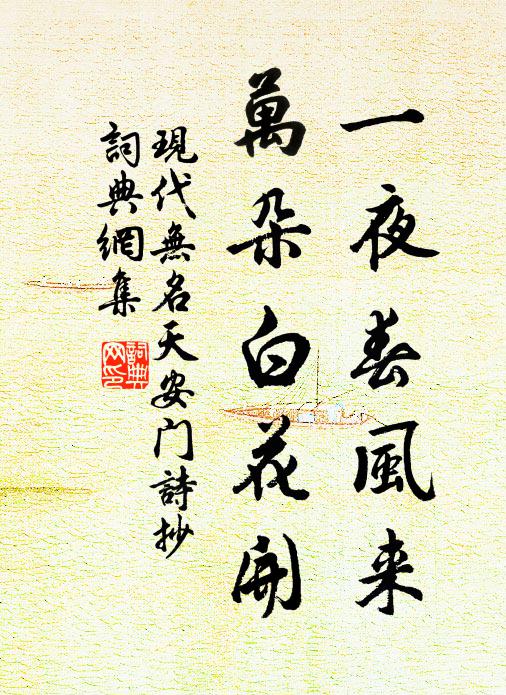 一夜春風来
萬朵白花開
現代無名天安门詩抄
詞典網集
詞典網印